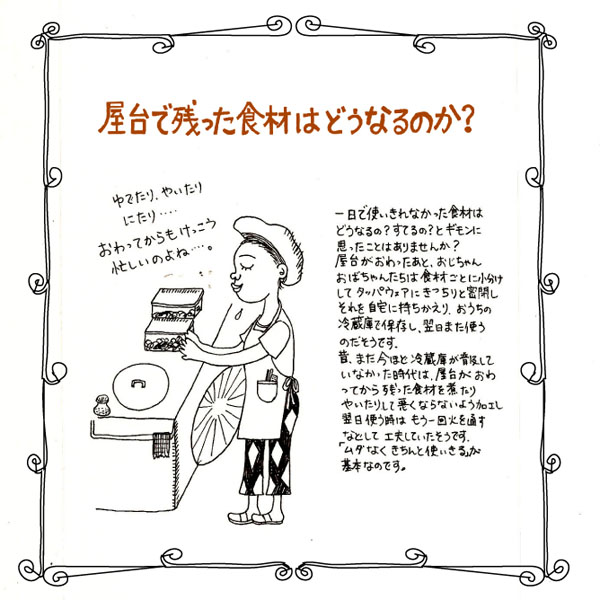 屋台で残った食材はどうなるのか?
ゆでたり、やいたり
にたり‥‥
おわってからもけっこう
忙しいのよね‥‥。
一日で使いきれなかった食材は
どうなるの?すてるの?とギモンに
思ったことはありませんか?
屋台がおわったあと、おじちゃん
おばちゃんたちは食材ごとに小分け
してタッパウェアにきっちりと密閉し
それを自宅に持ちかえり、おうちの
冷蔵庫で保存し、翌日また使う
のだそうです。
昔、まだ今ほど冷蔵庫が普及して
いなかった時代は、屋台がおわ
ってから残った食材を煮たり
やいたりして悪くならないよう加工し
翌日使う時はもう一回火を通す
などして工夫していたそうです。
「ムダなくきちんと使いきる」が
基本なのです。